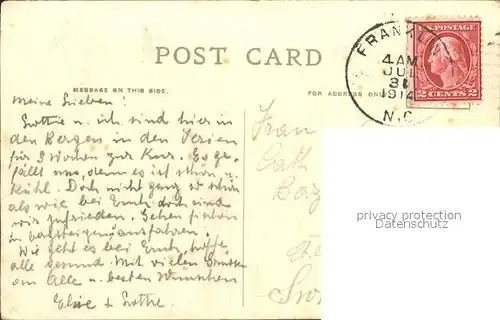 POST CARD
MESSAGE ON THIS SIDE.
FOR ADDRESS ONLY
FRANKLIN
4 AM
JUL
31
1914
N.C.
U.S. POSTAGE
2 CENTS 2
Meine Lieben!
Lotte u. ich sind hier in
den Bergen in den Ferien
für 3 Wochen zur Kur. Es ge-
fällt uns, denn es ist schön u.
kühl. Doch nicht ganz so schön
als wie bei Euch doch sind
wir zufrieden. Gehen fischen
Wie geht es bei Euch, hoffe,
alle gesund. Mit vielen Grüssen
an Alle u. besten Wünschen
Elsie + Lotte.
Frau
privacy protection
Datenschutz